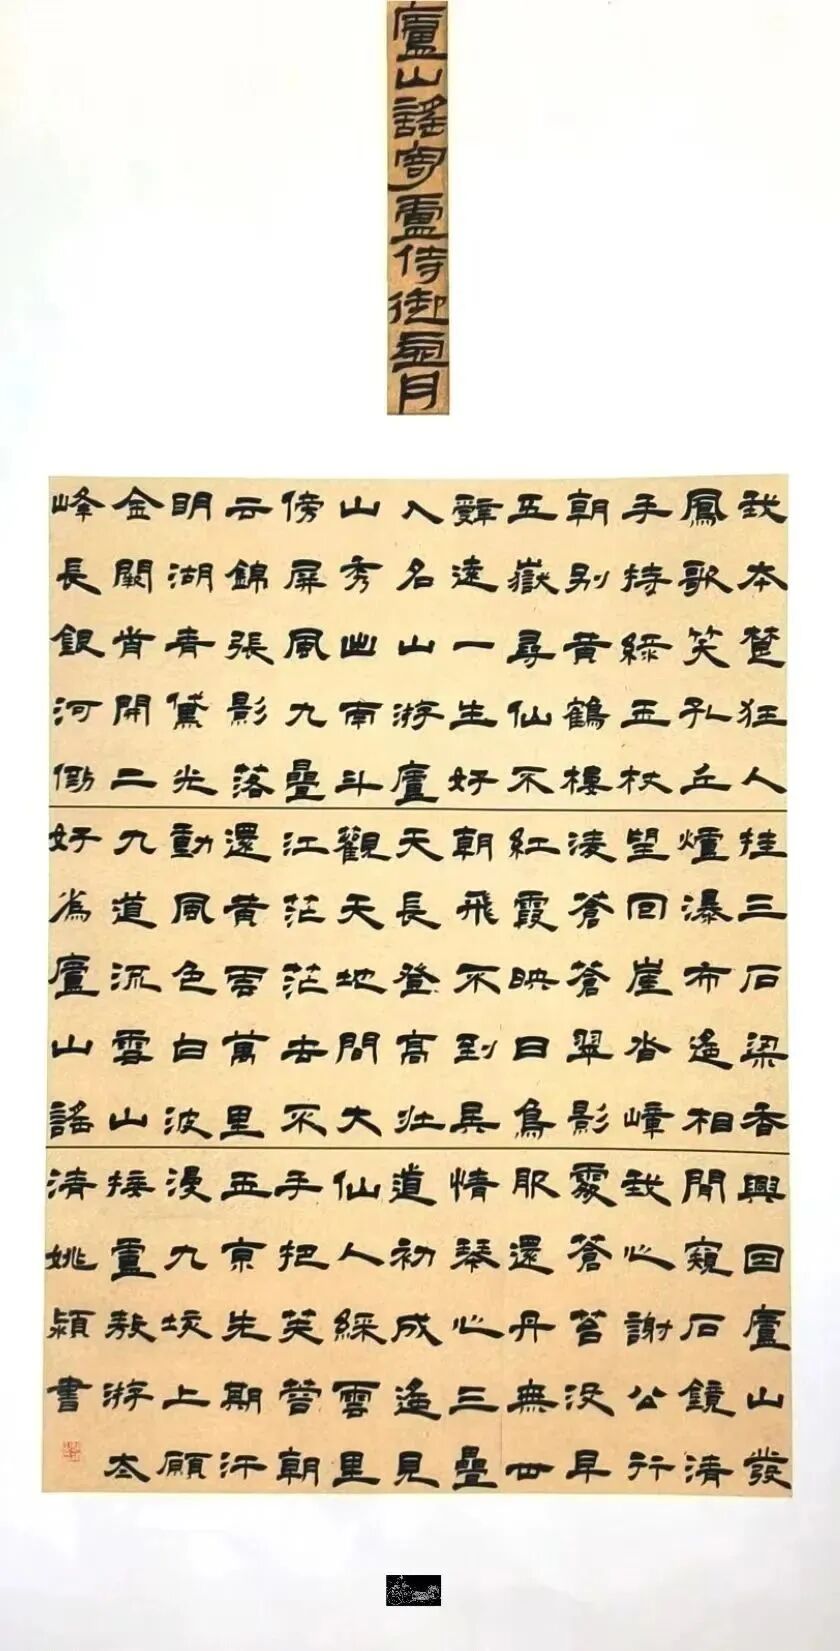 廬山謠寄盧侍御虛舟
我本楚狂人
鳳歌笑孔丘
手持綠玉杖
朝別黃鶴樓
五嶽尋仙不
辤遠一生好
入名山游廬
山秀出南斗
傍屏風九疊
云錦張影落
明湖青黛光
金闕前開二
峰長銀河倒
挂三石梁香
爐瀑布遙相
望回崖沓嶂
凌蒼蒼翠影
紅霞映日鳥
朝飛不到吳
天長登高壯
觀天地間大
江茫茫去不
還黃雲萬里
動風色白波
九道流雪山
好為廬山謠
興因廬山發
閒窺石鏡清
我心謝公行
處蒼苔沒早
服還丹無世
情琴心三疊
道初成遙見
仙人綵雲里
手把芙蓉朝
玉京先期汗
漫九垓上願
接盧敖游太
清姚潁書